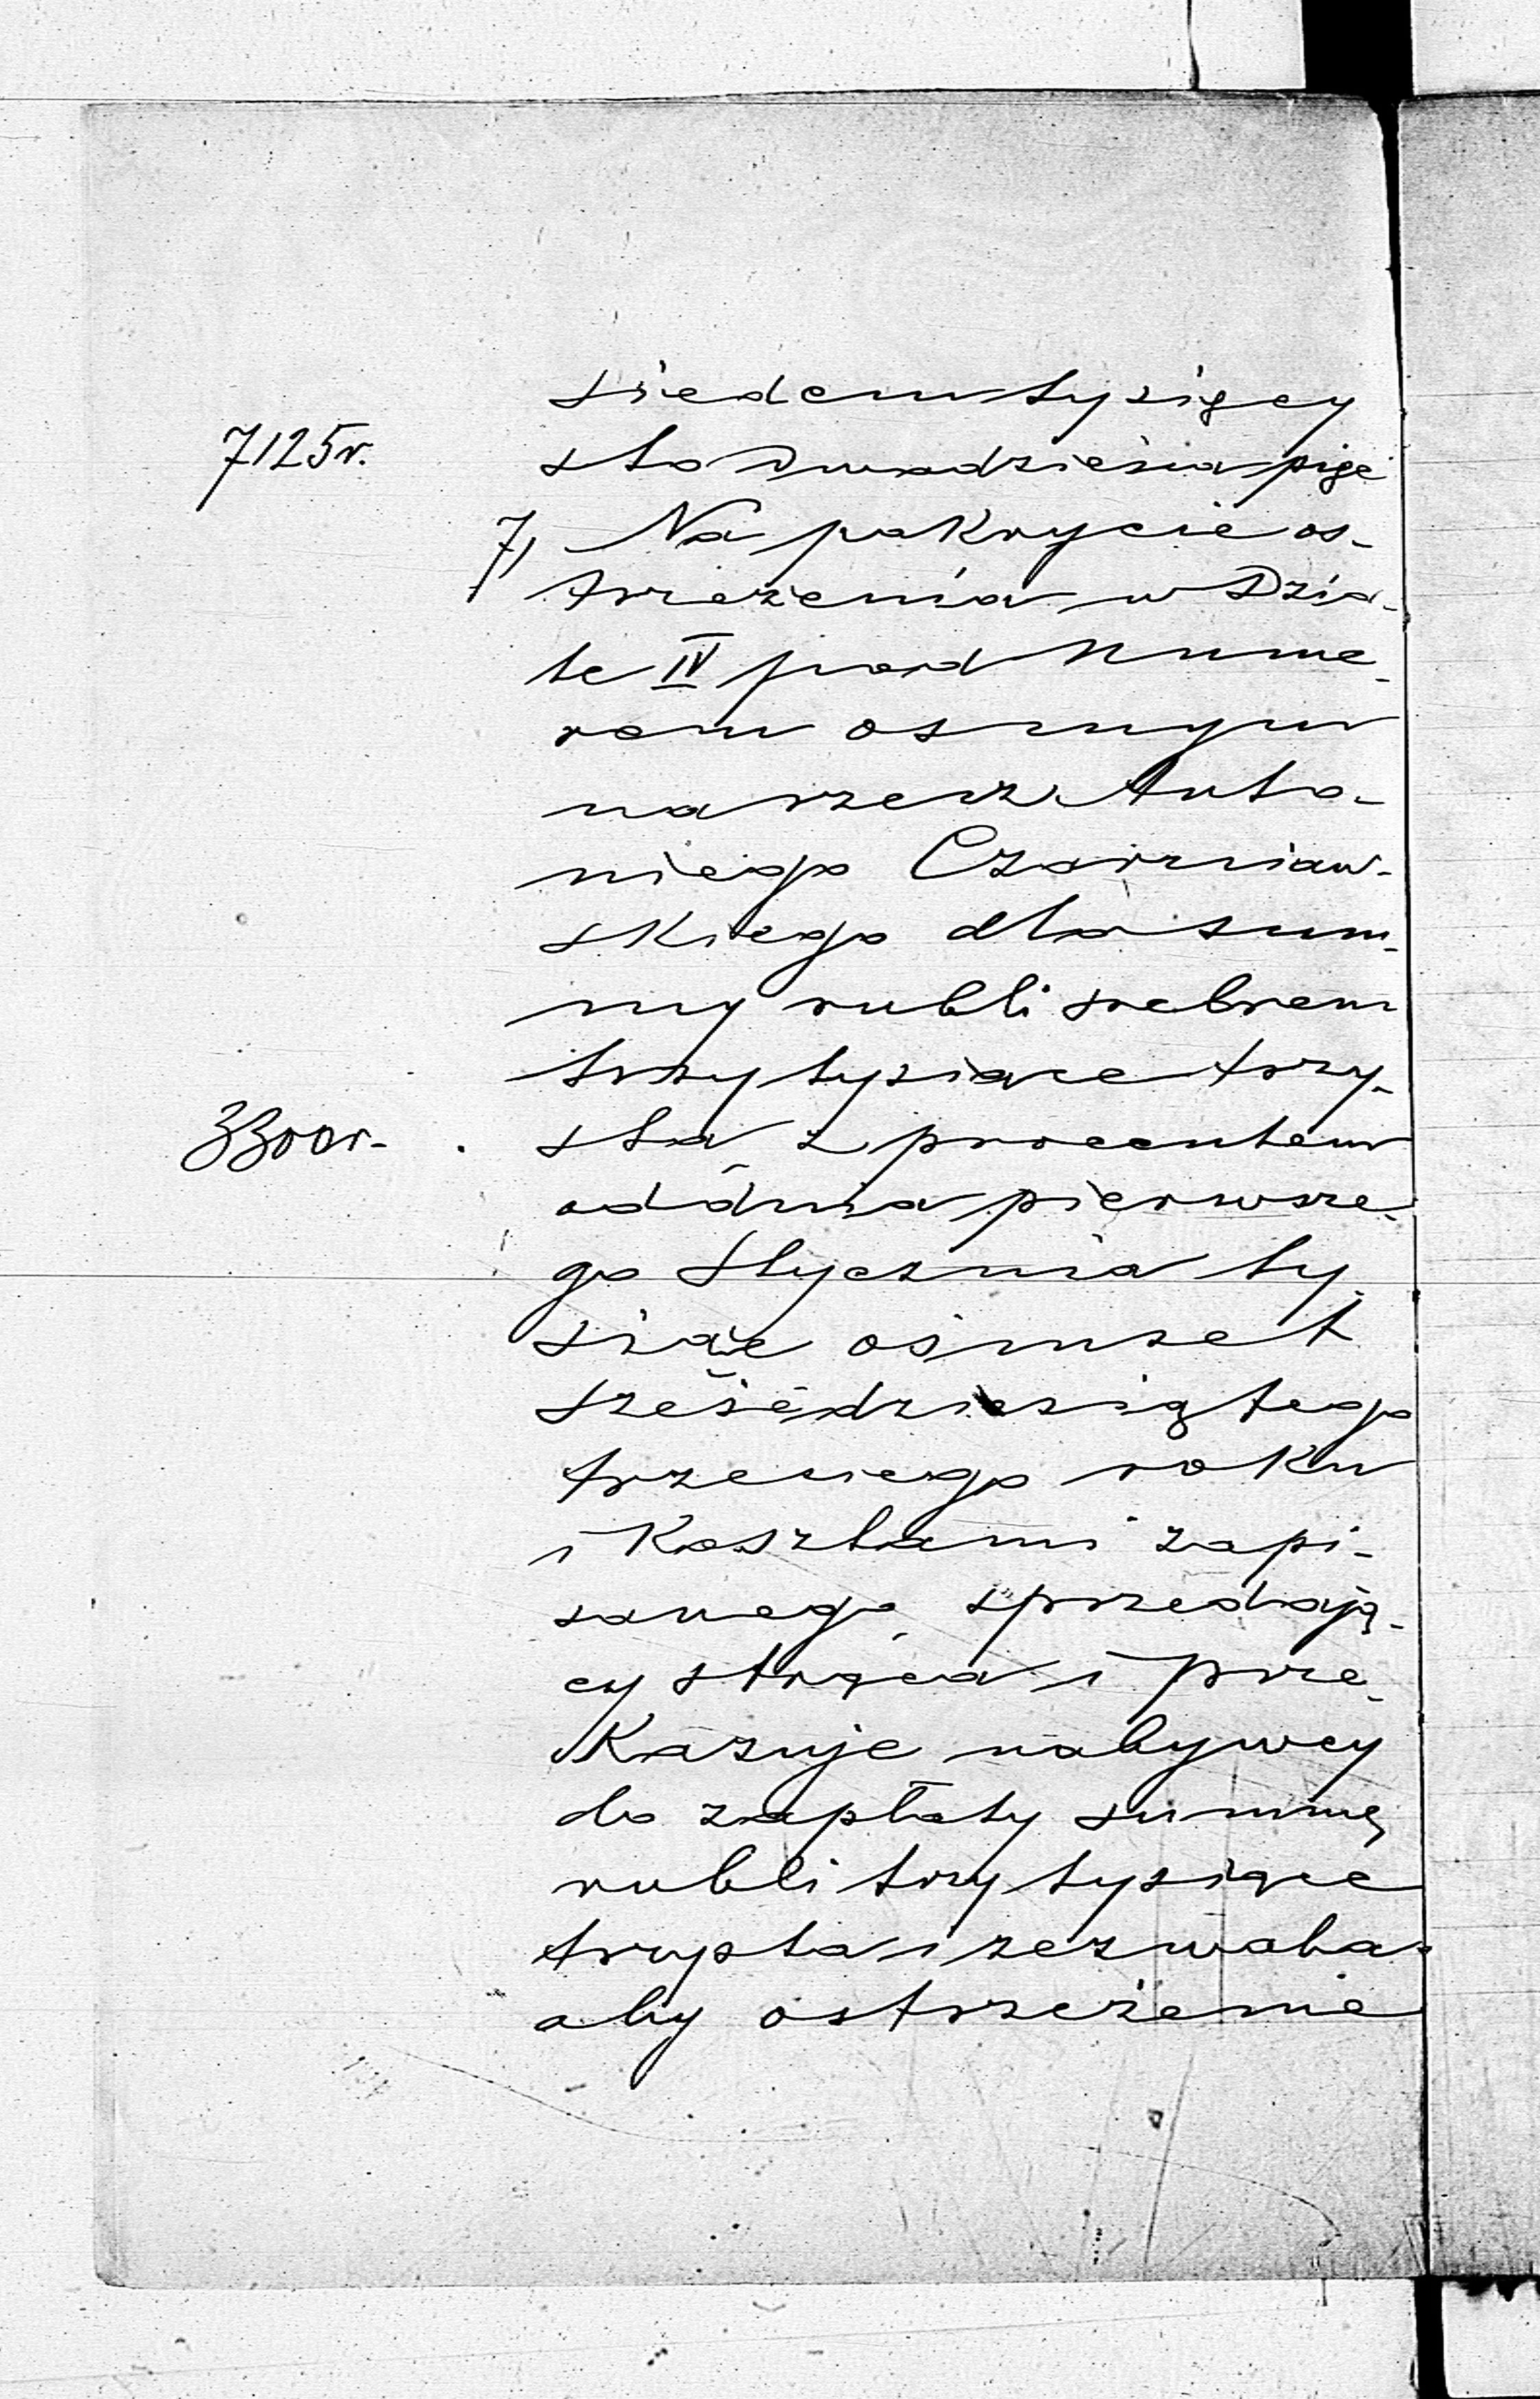 siedem tysięcy
7125r. sto dwadzieścia pięć
7, Na pokrycie os-
trzeżenia w Dzia-
le IV pod Nume-
rem osmym
na rzecz Anto-
niego Czarniaw-
skiego dla sum-
my rubli srebrem
trzy tysiące trzy-
3300r. sta z procentem
od dnia pierwsze-
go Stycznia ty-
siąc ośmset
sześćdziesiątego
trzeciego roku
i Kosztami zapi-
sanego, sprzedają-
cy strąca i prze-
kazuje nabywcy
do zapłaty summę
rubli trzy tysiące
trzysta i zezwala
aby ostrzeżenie